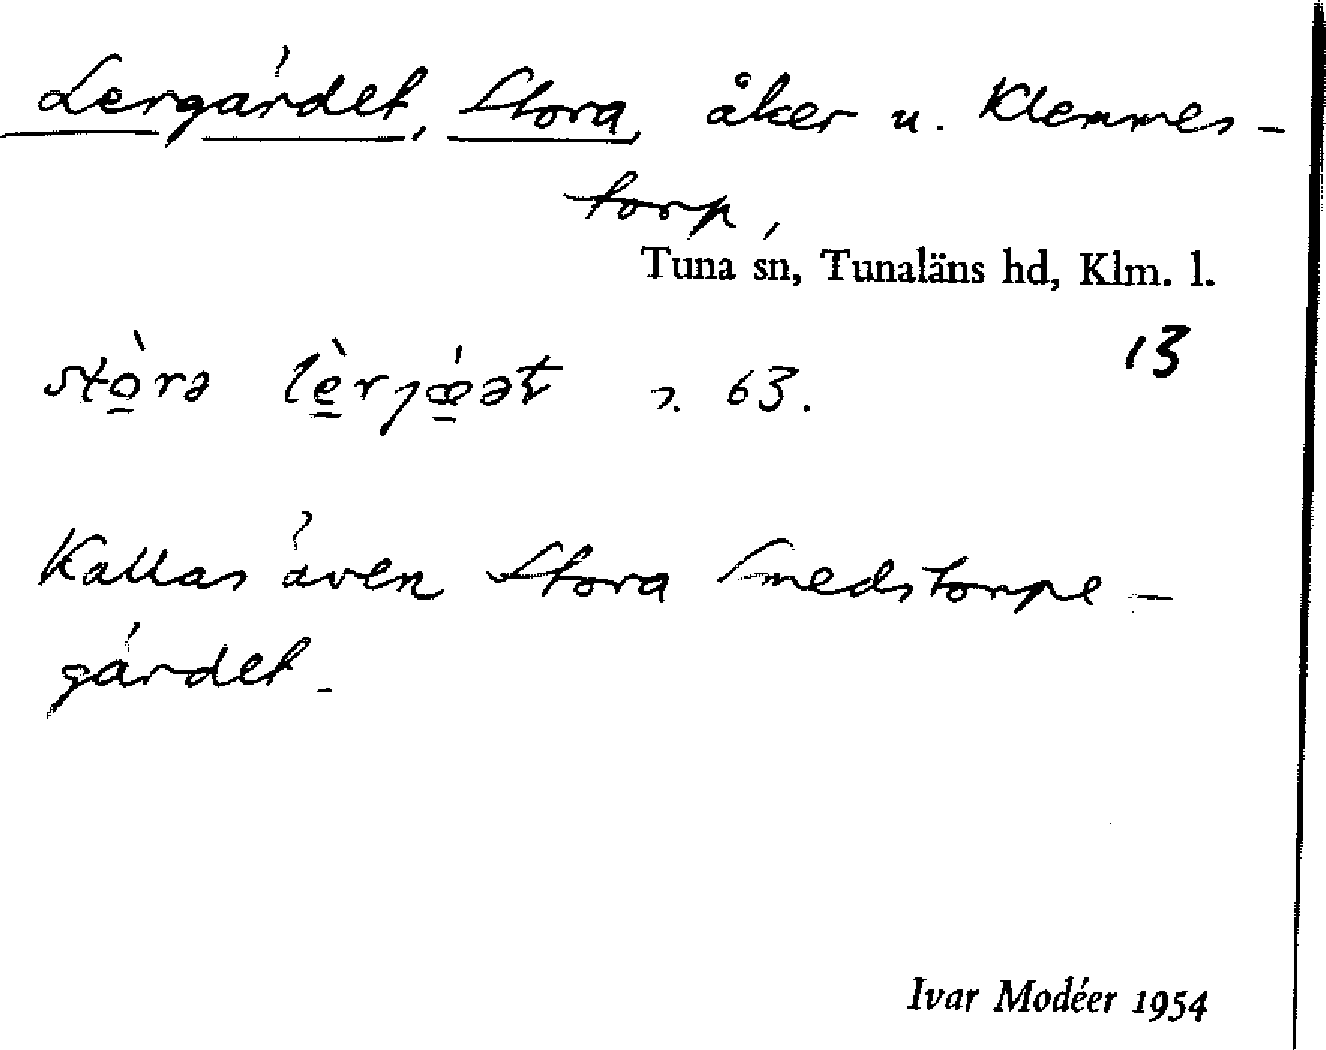 Lergärdet, Stora, åker u. Klemmes-
torp,
Tuna sn, Tunaläns hd, Klm. l.
13
63.
Kallas även Stora Smedstorpe-
gärdet.
Ivar Modéer 1954